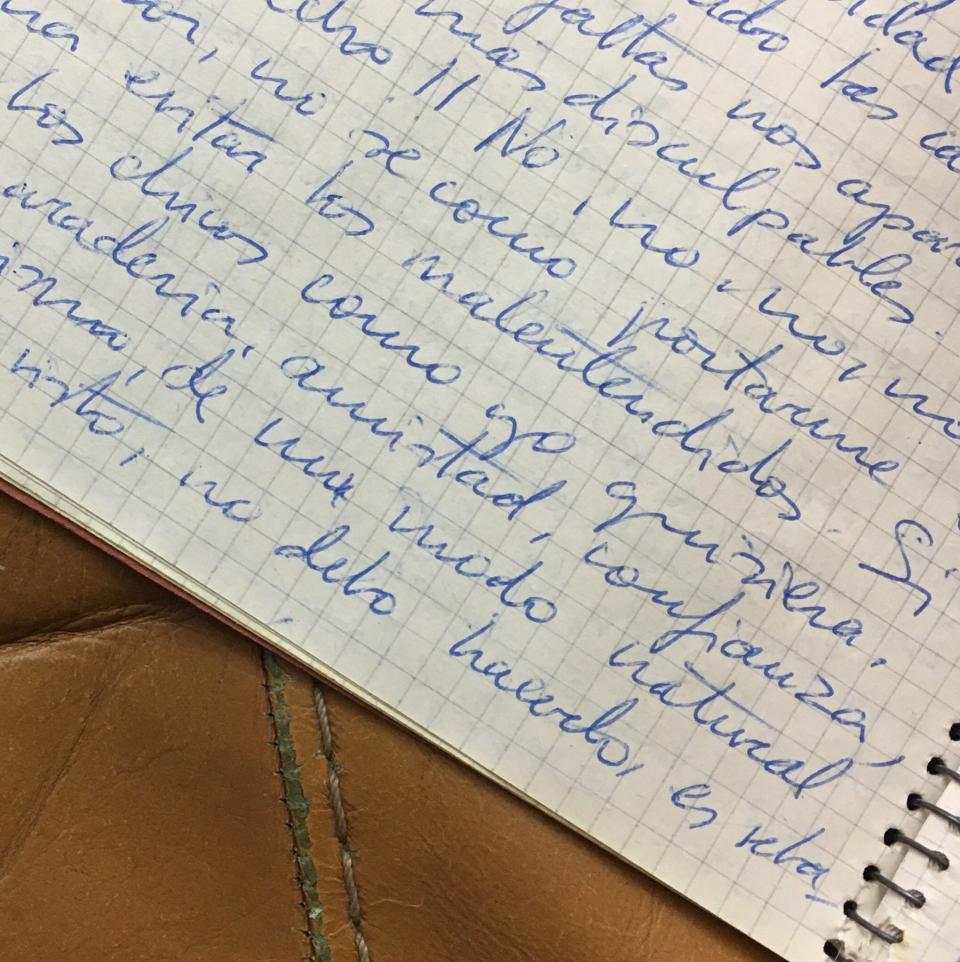 idad
ado las ca
faltas nos apar
más disculpables.
cho !! No, no, no, no
or, no se como portarme
na evitar los malentendidos. Si
los chicos como yo quisiera,
aradería, amistad, confianza,
ismo, de un modo natural
visto, no debo hacerlo, es reba_